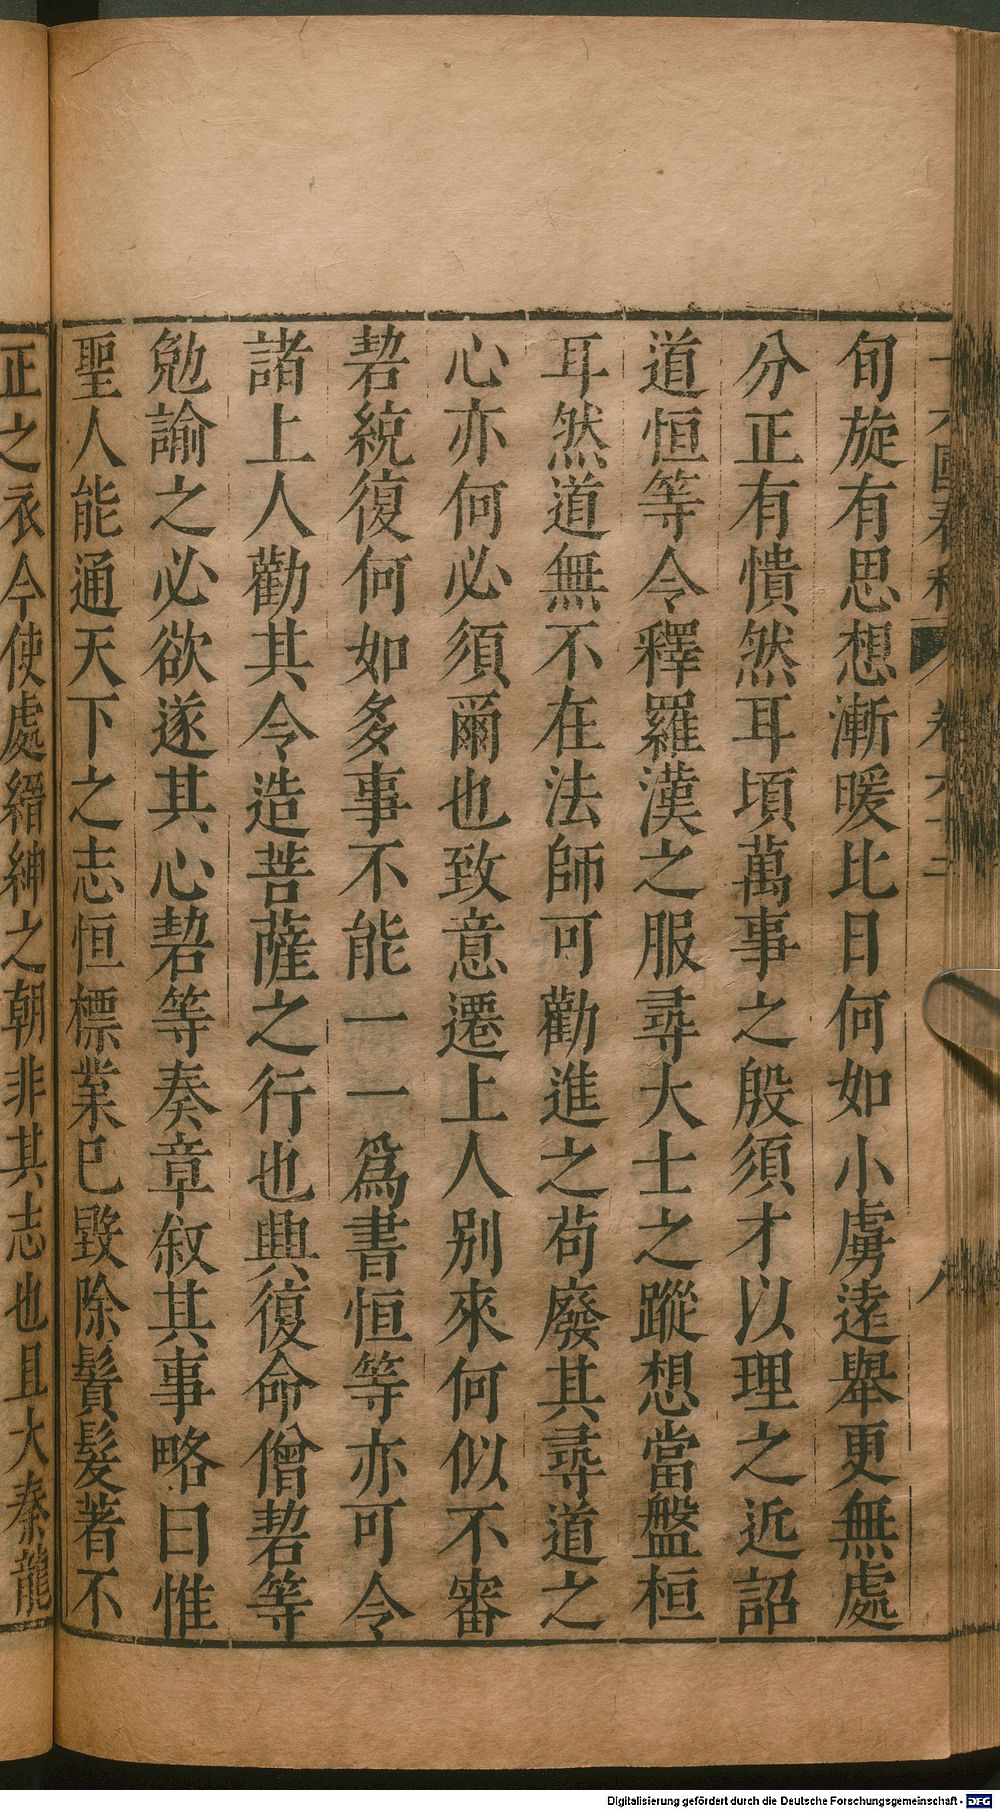 旬旋有思想漸暖比日何如小虜遠舉更無處
分正有憒然耳頃萬事之殷須才以理之近詔
道恒等令釋羅漢之服尋大士之蹤想當盤桓
耳然道無不在法師可勸進之苟廢其尋道之
心亦何必須爾也致意遷上人別來何似不審
䂮統復何如多事不能一一爲書恒等亦可令
諸上人勸其令造菩薩之行也興復命僧䂮等
勉諭之必欲遂其心䂮等奏章叙其事略曰惟
聖人能通天下之志恒標業已毀除鬚髮著不
正之衣今使處縉紳之朝非其志也且大秦龍
Digitalisierung gefördert durch die Deutsche Forschungsgemeinschaft - DFG